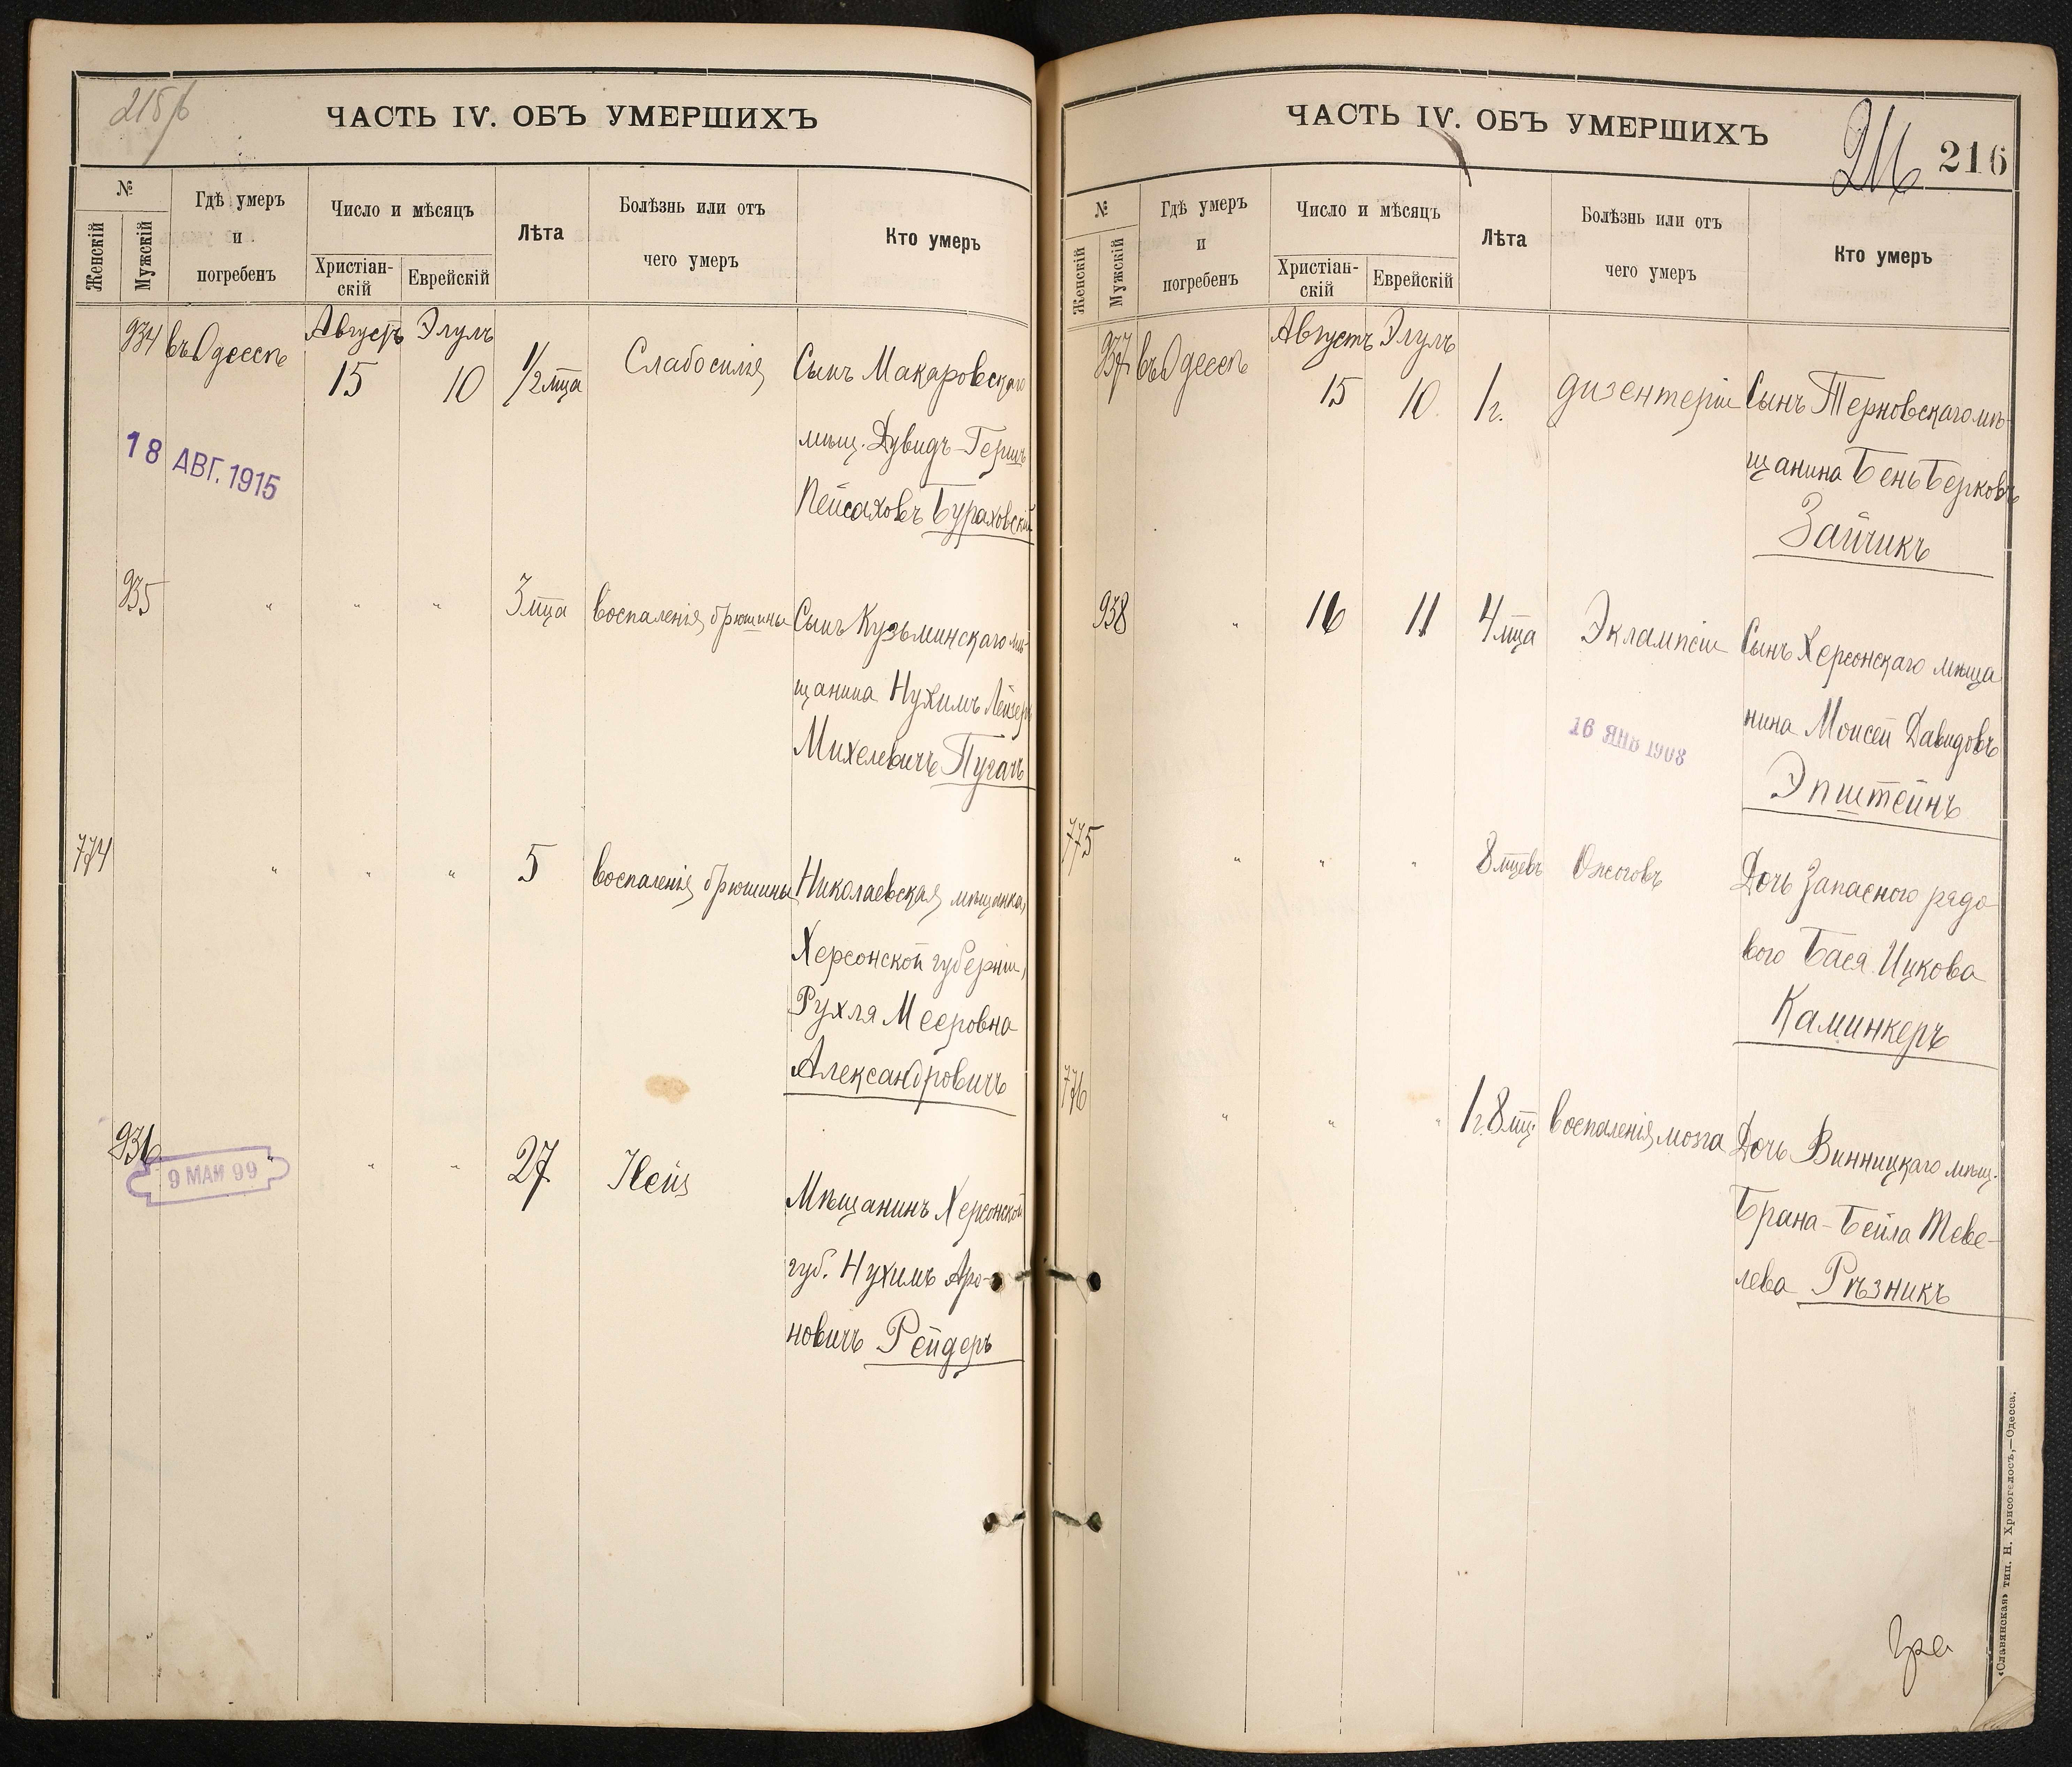 215/б
ЧАСТЬ IV. ОБЪ УМЕРШИХЪ
№
Женскій
Мужскій
Гдѣ умеръ
и
погребенъ
Число и мѣсяцъ
Христіан-
скій
Еврейскій
Лѣта
Болѣзнь или отъ
чего умеръ
Кто умеръ
Августъ Элулъ
934 въ Одессѣ 15 10 1/2 мца Слабосилія Сынъ Макаровскаго
мѣщ. Дувидъ-Гершъ
Пейсаховъ Бураховскій
18 АВГ. 1915
935 " " " 3 мца воспаленія брюшины Сынъ Кузьминскаго мѣ-
щанина Нухимъ Лейзеръ
Михелевичъ Пугачъ
774 " " " 5 воспаленія брюшины Николаевская мѣщанка,
Херсонской губерніи,
Рухля Мееровна
Александровичъ
936 " " " 27
9 МАЯ 99
Мѣщанинъ Херсонской
губ. Нухимъ Аро-
новичъ Рейдеръ
ЧАСТЬ IV. ОБЪ УМЕРШИХЪ
216 216
№
Женскій
Мужскій
Гдѣ умеръ
и
погребенъ
Число и мѣсяцъ
Христіан-
скій
Еврейскій
Лѣта
Болѣзнь или отъ
чего умеръ
Кто умеръ
Августъ Элулъ
937 въ Одессѣ 15 10 1 г. дизентеріи Сынъ Терновскаго мѣ-
щанина Бень Берковъ
Зайчикъ
938 " 16 11 4 мца Эклампсіи Сынъ Херсонскаго мѣща
нина Моисей Давидовъ
Эпштейнъ
16 ЯНВ 1908
775 " " " 8 мцевъ Ожоговъ Дочь Запасного рядо
вого Бася Ицкова
Каминкеръ
776 " " " 1 г. 8 мц. воспаленія мозга Дочь Винницкаго мѣщ.
Брана-Бейла Теве-
лева Рѣзникъ
«Славянская» тип. Н. Хрисогелосъ,—Одесса.